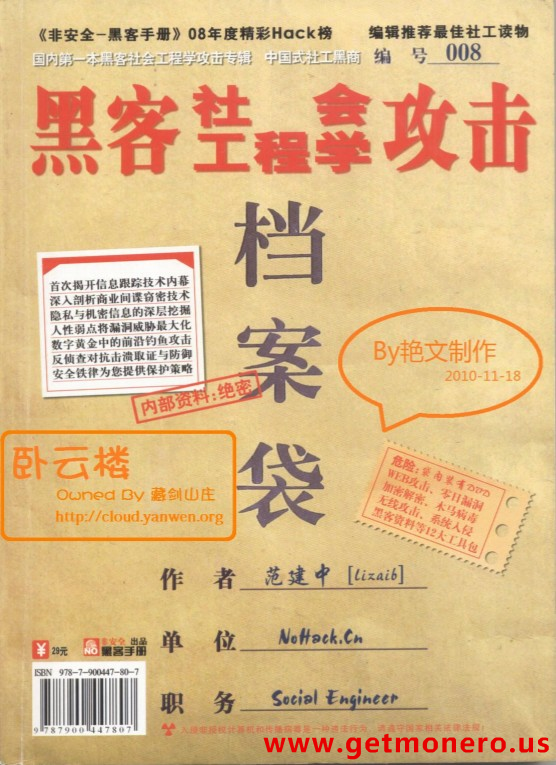 《非安全-黑客手册》08年度精彩Hack榜
编辑推荐最佳社工读物
国内第一本黑客社会工程学攻击专辑 中国式社工黑商
编 号 008
黑客社会工程学攻击
档案袋
首次揭开信息跟踪技术内幕
深入剖析商业间谍窃密技术
隐私与机密信息的深层挖掘
人性弱点将漏洞威胁最大化
数字黄金中的前沿钓鱼攻击
反侦查对抗击溃取证与防御
安全铁律为您提供保护策略
内部资料:绝密
By艳文制作
2010-11-18
卧云楼
Owned By 藏剑山庄
http://cloud.yanwen.org
危险:袋内装有DVD
WEB攻击、零日漏洞
加密解密、木马病毒
无线攻击、系统入侵
黑客资料等12大工具包
作 者 范建中 [lizaib]
单 位 NoHack.Cn
职 务 Social Engineer
¥ 29元
NO 非安全 出品
黑客手册
ISBN 978-7-900447-80-7
9 787900 447807
www.getmonero.us